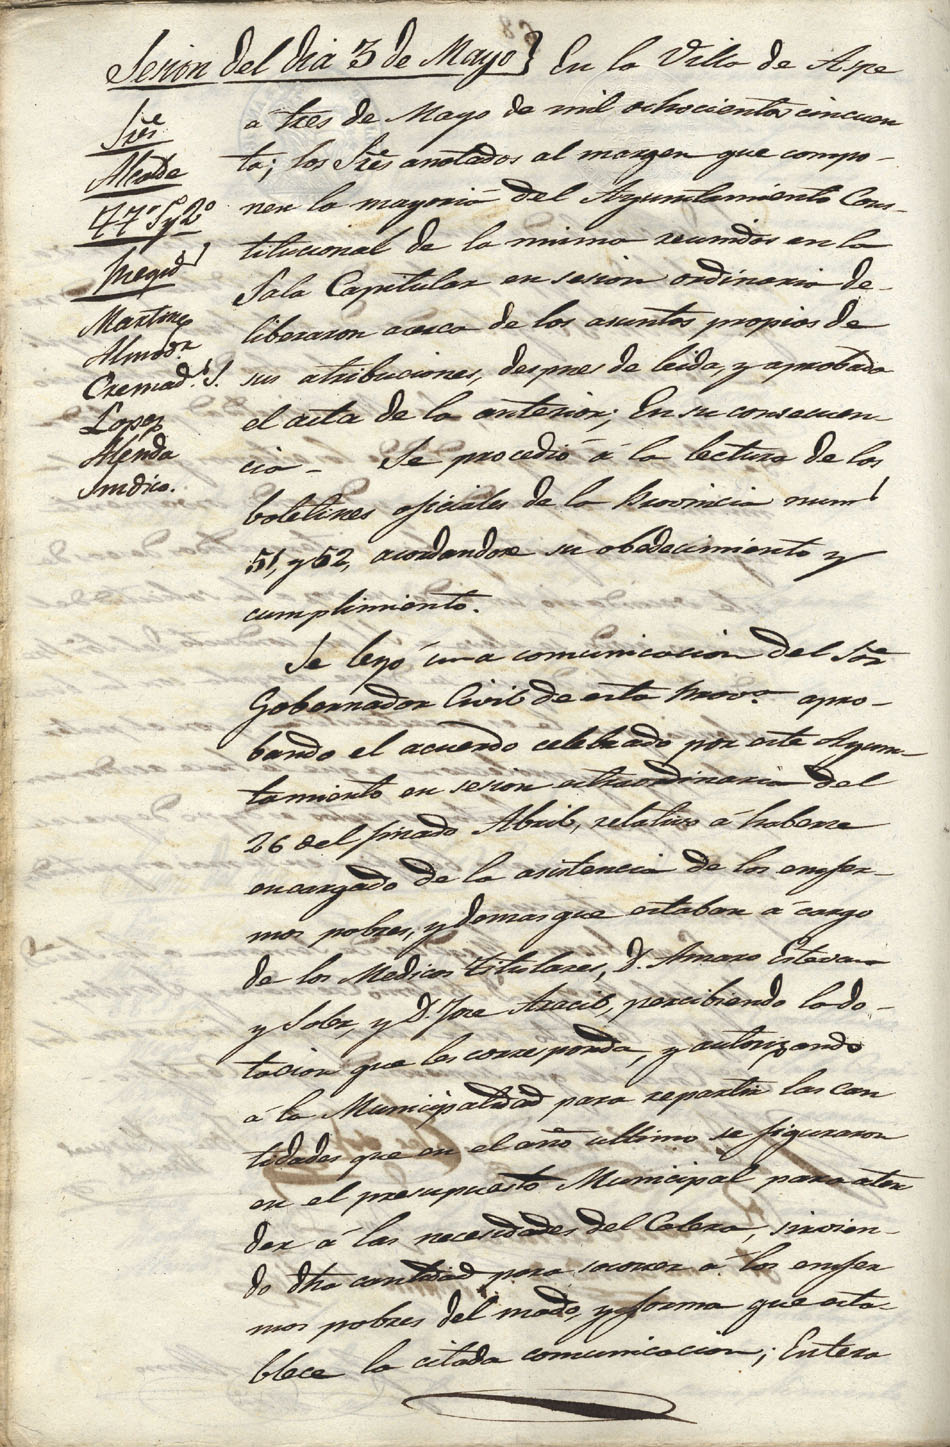 Sesion del dia 3 de Mayo} En la Villa de Aspe
á tres de Mayo de mil ochocientos cincuen
ta; los Sres anotados al margen que compo-
nen la mayoria del Ayuntamiento Cons-
titucional de la misma reunidos en la
Sala Capitular en sesion ordinaria de-
liberaron acerca de los asuntos propios de
sus atribuciones, despues de leida, y aprobada
el acta de la anterior; En su consecuen-
cia - Se procedió á la lectura de los
boletines oficiales de la Provincia num.s
51, y 52, acordandose su obedecimiento y
cumplimiento.
Se leyó una comunicacion del Sor
Gobernador Civil de esta Prov.a apro-
bando el acuerdo celebrado por este Ayun-
tamiento en sesion extraordinaria del
26 del finado Abril, relativo á haberse
encargado de la asistencia de los enfer-
mos pobres, y demas que estaban á cargo
de los Medicos titulares, D. Amaro Estevan
y Soler, y D. Jose Aracil, percibiendo la do-
tacion que les corresponda, y autorizando
á la Municipalidad para repartir las can
tidades que en el año ultimo se figuraron
en el presupuesto Municipal para aten
der á las necesidades del Colera, sirvien-
do dha cantidad para socorrer á los enfer
mos pobres del modo, y forma que esta-
blece la citada comunicacion; Entera
Sres
Alcalde
TT.es 1º y 2º
Regid.s
Martinez
Almod.r
Cremad.s S.
Lopez
Alenda
Sindico.